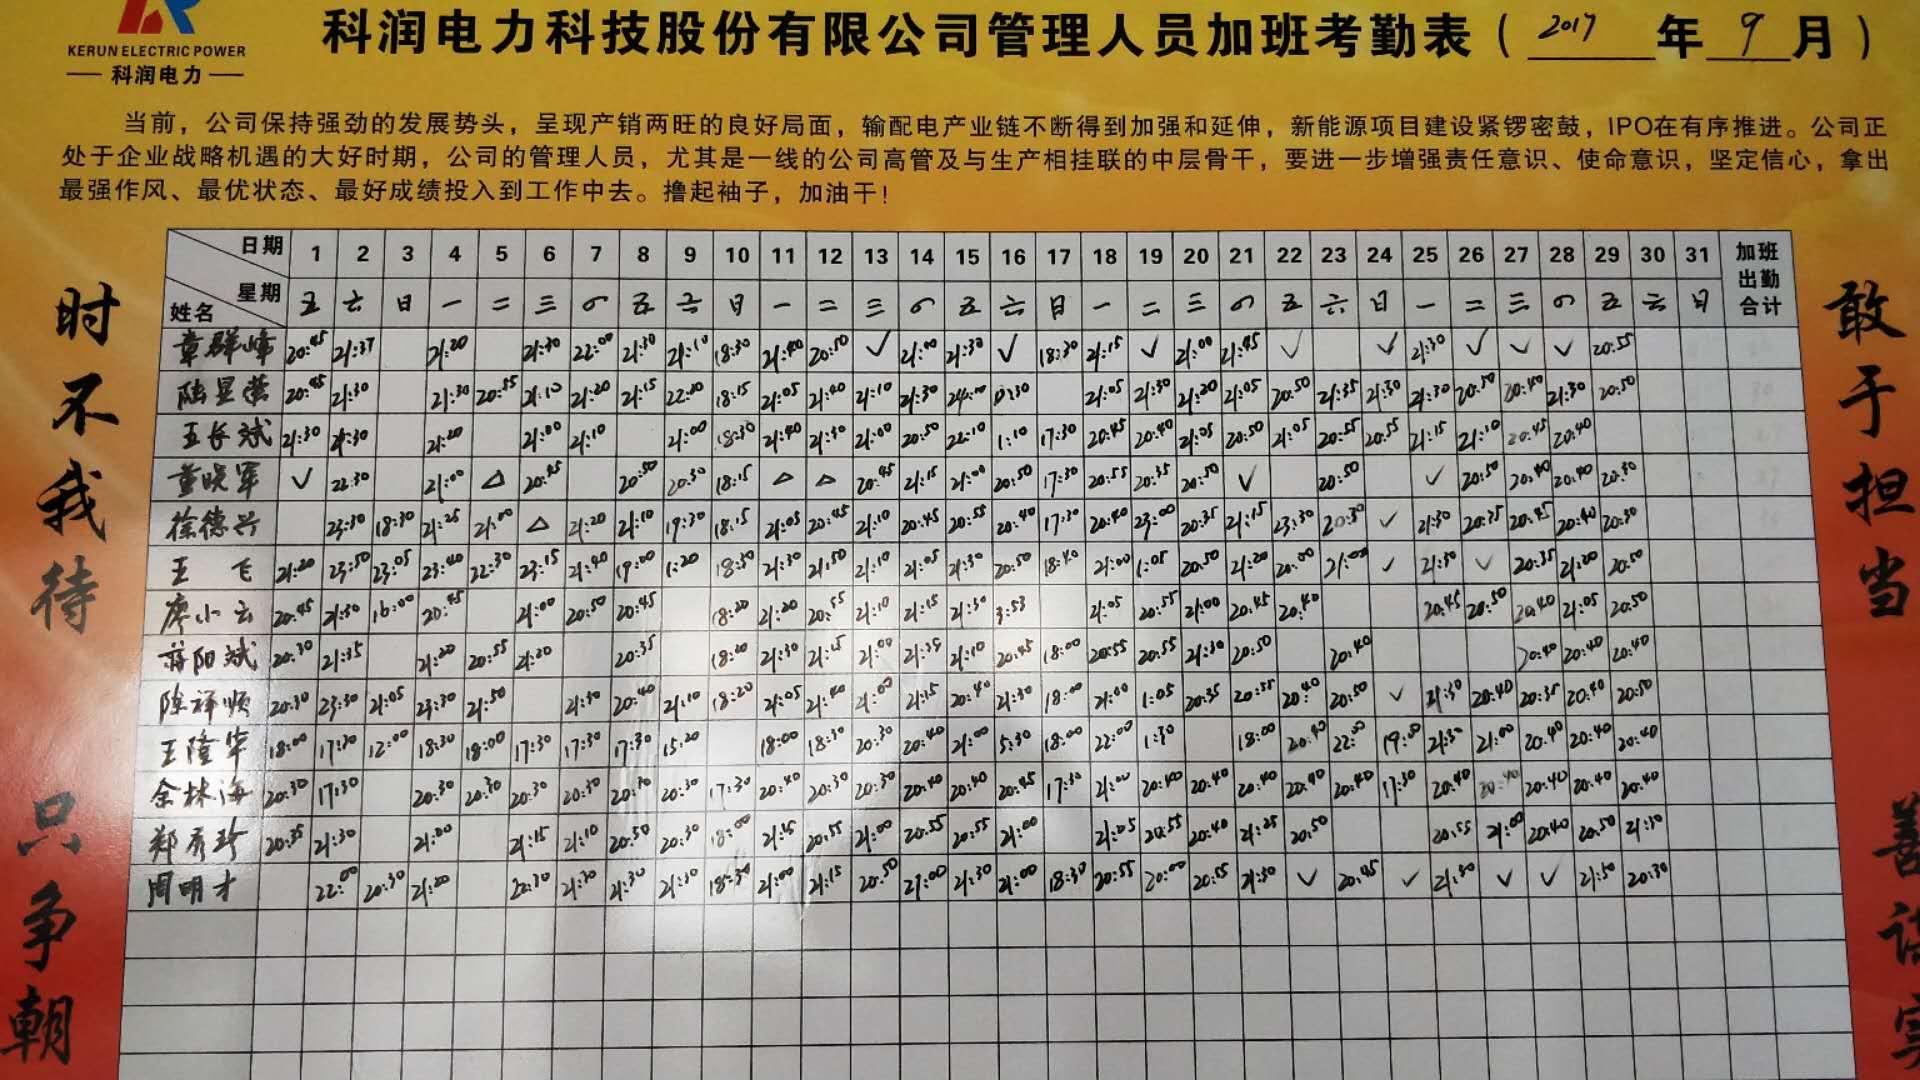 KERUN ELECTRIC POWER
科润电力
科润电力科技股份有限公司管理人员加班考勤表（2017年9月）
当前，公司保持强劲的发展势头，呈现产销两旺的良好局面，输配电产业链不断得到加强和延伸，新能源项目建设紧锣密鼓，IPO在有序推进。公司正
处于企业战略机遇的大好时期，公司的管理人员，尤其是一线的公司高管及与生产相挂联的中层骨干，要进一步增强责任意识、使命意识，坚定信心，拿出
最强作风、最优状态、最好成绩投入到工作中去。撸起袖子，加油干！
时不我待
只争朝
敢于担当
善
日期 1 2 3 4 5 6 7 8 9 10 11 12 13 14 15 16 17 18 19 20 21 22 23 24 25 26 27 28 29 30 31 加班出勤合计
星期 五 六 日 一 二 三 四 五 六 日 一 二 三 四 五 六 日 一 二 三 四 五 六 日 一 二 三 四 五 六 日
姓名
章群峰 20:45 21:37 21:20 21:30 22:00 21:30 21:10 18:30 21:40 20:50 ✓ 21:00 21:30 ✓ 18:30 21:15 ✓ 21:00 21:45 ✓ ✓ 21:30 ✓ ✓ ✓ 20:55
20:45 21:30 21:30 20:55 21:10 21:20 21:15 22:20 18:15 21:05 21:40 21:10 21:30 24:00 0:30 21:05 21:30 21:20 21:05 20:50 21:35 21:30 21:30 20:50 20:40 21:30 20:50
王长斌 21:30 21:30 21:20 21:00 21:10 21:00 18:30 21:40 21:30 21:00 20:50 22:10 1:10 17:30 20:45 20:40 21:05 20:50 21:05 20:55 20:55 21:15 21:10 20:45 20:40
董晓军 ✓ 22:30 21:00 △ 20:45 20:50 20:30 18:15 △ △ 20:45 21:15 21:00 20:50 17:30 20:55 20:35 20:50 ✓ 20:50 ✓ 20:50 20:40 20:40 20:30
徐德兴 23:30 18:30 21:25 21:00 △ 21:20 21:10 19:30 18:15 21:05 20:45 21:10 20:45 20:55 20:40 17:30 20:40 23:00 20:35 21:15 23:30 20:30 ✓ 21:30 20:35 20:45 20:40 20:30
王飞 21:20 23:50 23:05 23:40 22:30 23:15 21:40 19:00 1:20 18:30 21:30 21:50 21:10 21:05 21:30 20:50 18:40 21:00 1:05 20:50 21:20 22:00 21:00 ✓ 21:30 ✓ 20:35 21:20 20:50
廖小云 20:45 21:50 16:00 20:45 21:00 20:50 20:45 18:20 21:20 20:55 21:10 21:15 21:30 3:53 21:05 20:55 21:00 20:45 20:40 20:45 20:50 20:40 21:05 20:50
蒋阳斌 20:30 21:35 21:20 20:55 21:20 20:35 18:20 21:30 21:15 21:00 21:35 21:10 20:45 18:00 20:55 20:55 21:30 20:50 20:40 20:40 20:40 20:40
陈祥顺 20:30 23:30 21:05 23:30 21:50 21:30 20:40 21:10 18:20 21:05 21:40 21:00 21:15 20:40 21:30 18:00 21:00 1:05 20:35 20:55 20:40 20:50 ✓ 21:30 20:40 20:35 20:40 20:50
王隆华 18:00 17:30 12:00 18:30 18:00 17:30 17:30 17:30 15:20 18:00 18:30 20:30 20:40 21:00 5:30 18:00 22:00 1:30 18:00 20:40 22:00 19:00 21:30 21:00 20:40 20:40 20:40
余林海 20:30 17:30 20:30 20:30 20:30 20:30 20:30 20:30 17:30 20:40 20:30 20:30 20:40 20:40 20:45 17:30 21:00 20:40 20:40 20:40 20:40 20:40 17:30 20:40 20:40 20:40 20:40 20:40
郑秀珍 20:35 21:30 21:00 21:15 21:10 20:50 20:30 18:00 21:15 20:55 21:00 20:55 20:55 21:00 21:05 20:55 20:40 21:25 20:50 20:55 21:00 20:40 20:50 21:10
周明才 22:00 20:30 21:20 22:30 21:30 21:30 21:30 18:30 21:00 21:15 20:50 21:00 21:30 21:00 18:30 20:55 20:00 20:55 21:30 ✓ 20:45 ✓ 21:30 ✓ ✓ 21:50 20:30